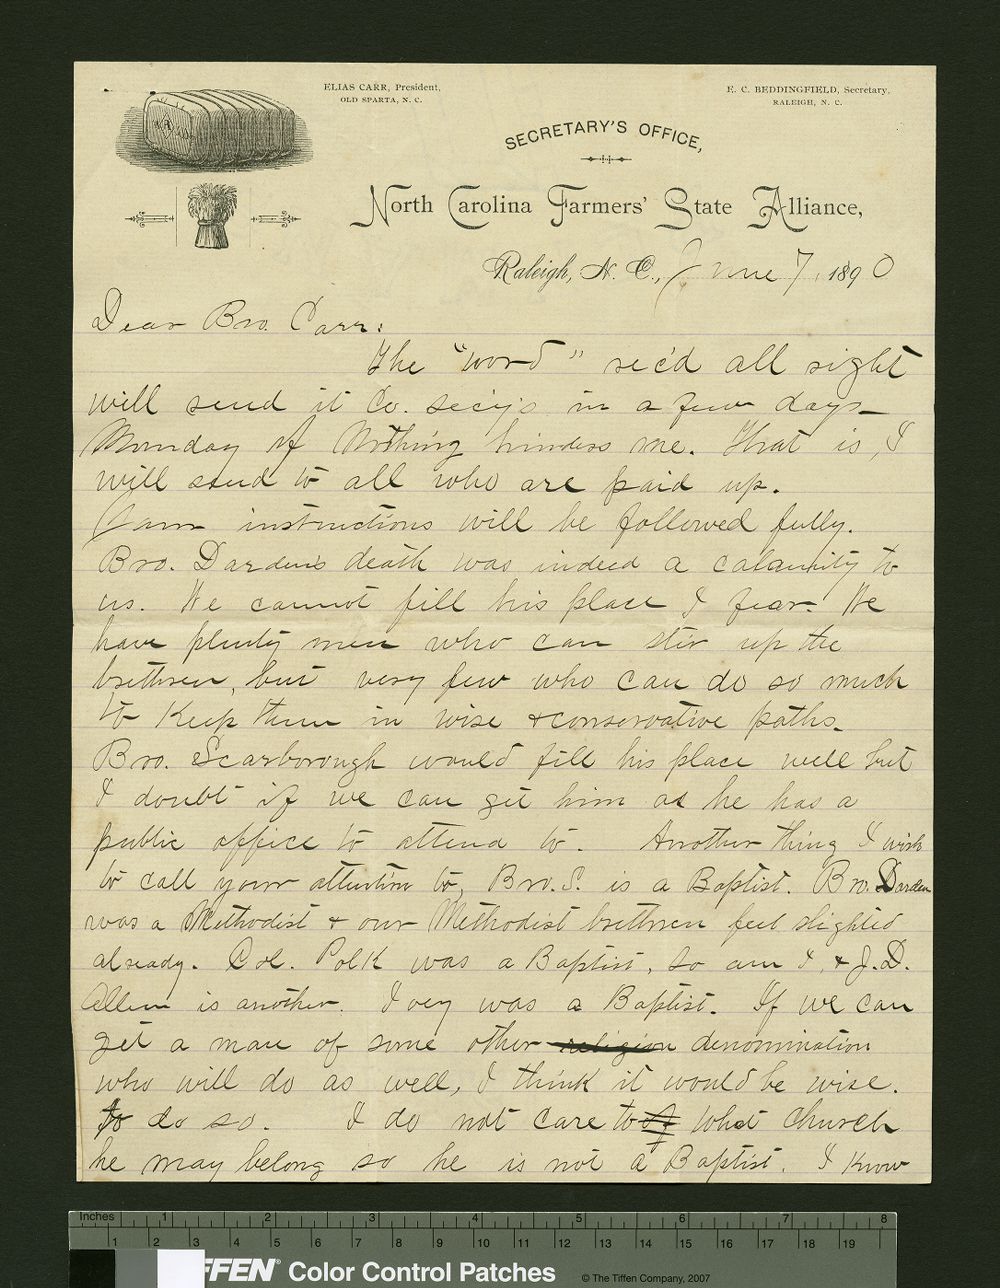 ELIAS CARR, President,
OLD SPARTA, N. C.
E. C. BEDDINGFIELD, Secretary,
RALEIGH, N. C.
SECRETARY'S OFFICE,
North Carolina Farmers' State Alliance,
Raleigh, N. C., June 7, 1890
Dear Bro. Carr:
The "word" rec'd all right
will send it Co. sec'ys in a few days—
Monday if Nothing hinders me. That is, I
will send to all who are paid up.
Your instructions will be followed fully.
Bro. Darden's death was indeed a calamity to
us. We cannot fill his place I fear. We
have plenty men who can stir up the
brethren, but very few who can do so much
to Keep them in wise & conservative paths.
Bro. Scarborough would fill his place well but
I doubt if we can get him as he has a
public office to attend to. Another thing I wish
to call your attention to, Bro. S. is a Baptist. Bro. Darden
was a Methodist & our Methodist brethren feel slighted
already. Col. Polk was a Baptist, so am I, & J. D.
Allen is another. Ivey was a Baptist. If we can
get a man of some other religion denomination
who will do as well, I think it would be wise.
to do so. I do not care to of what church
he may belong so he is not a Baptist. I know
Inches 1 2 3 4 5 6 7 8
1 2 3 4 5 6 7 8 9 10 11 12 13 14 15 16 17 18 19
FFEN® Color Control Patches © The Tiffen Company, 2007